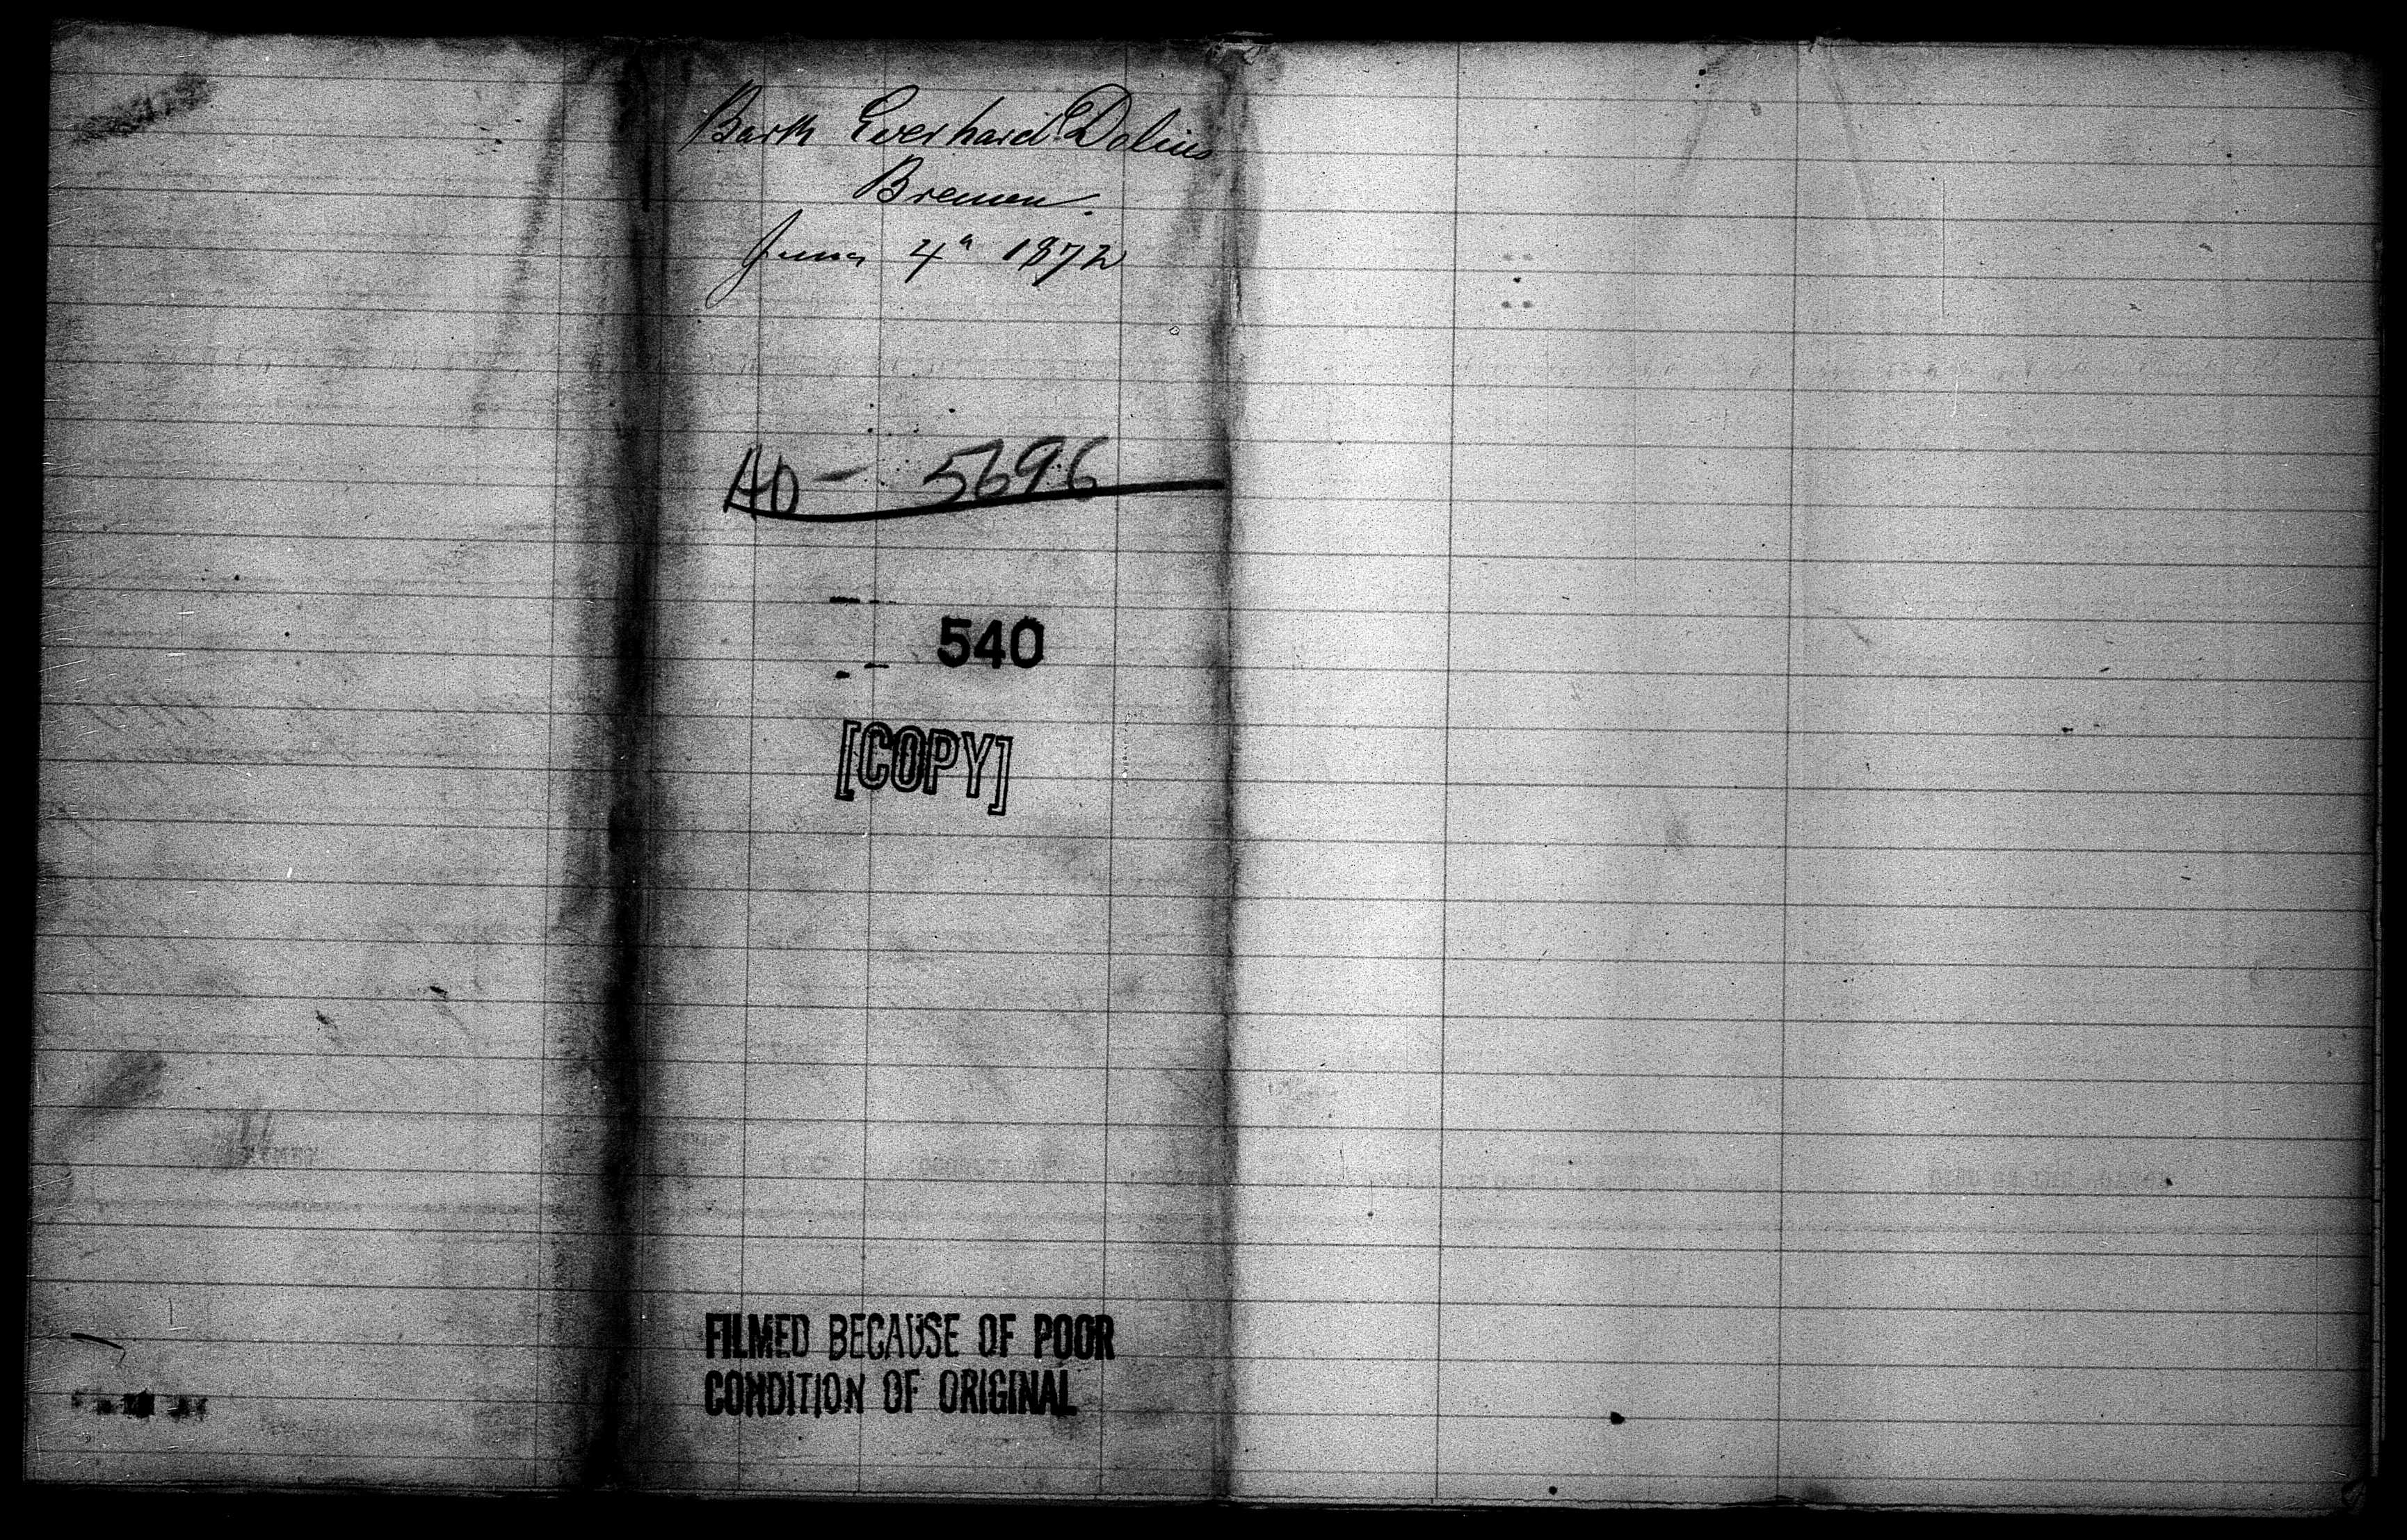 Bark Everhard Delius
Bremen.
June 4" 1872
AD - 5696
540
[COPY]
FILMED BECAUSE OF POOR
CONDITION OF ORIGINAL